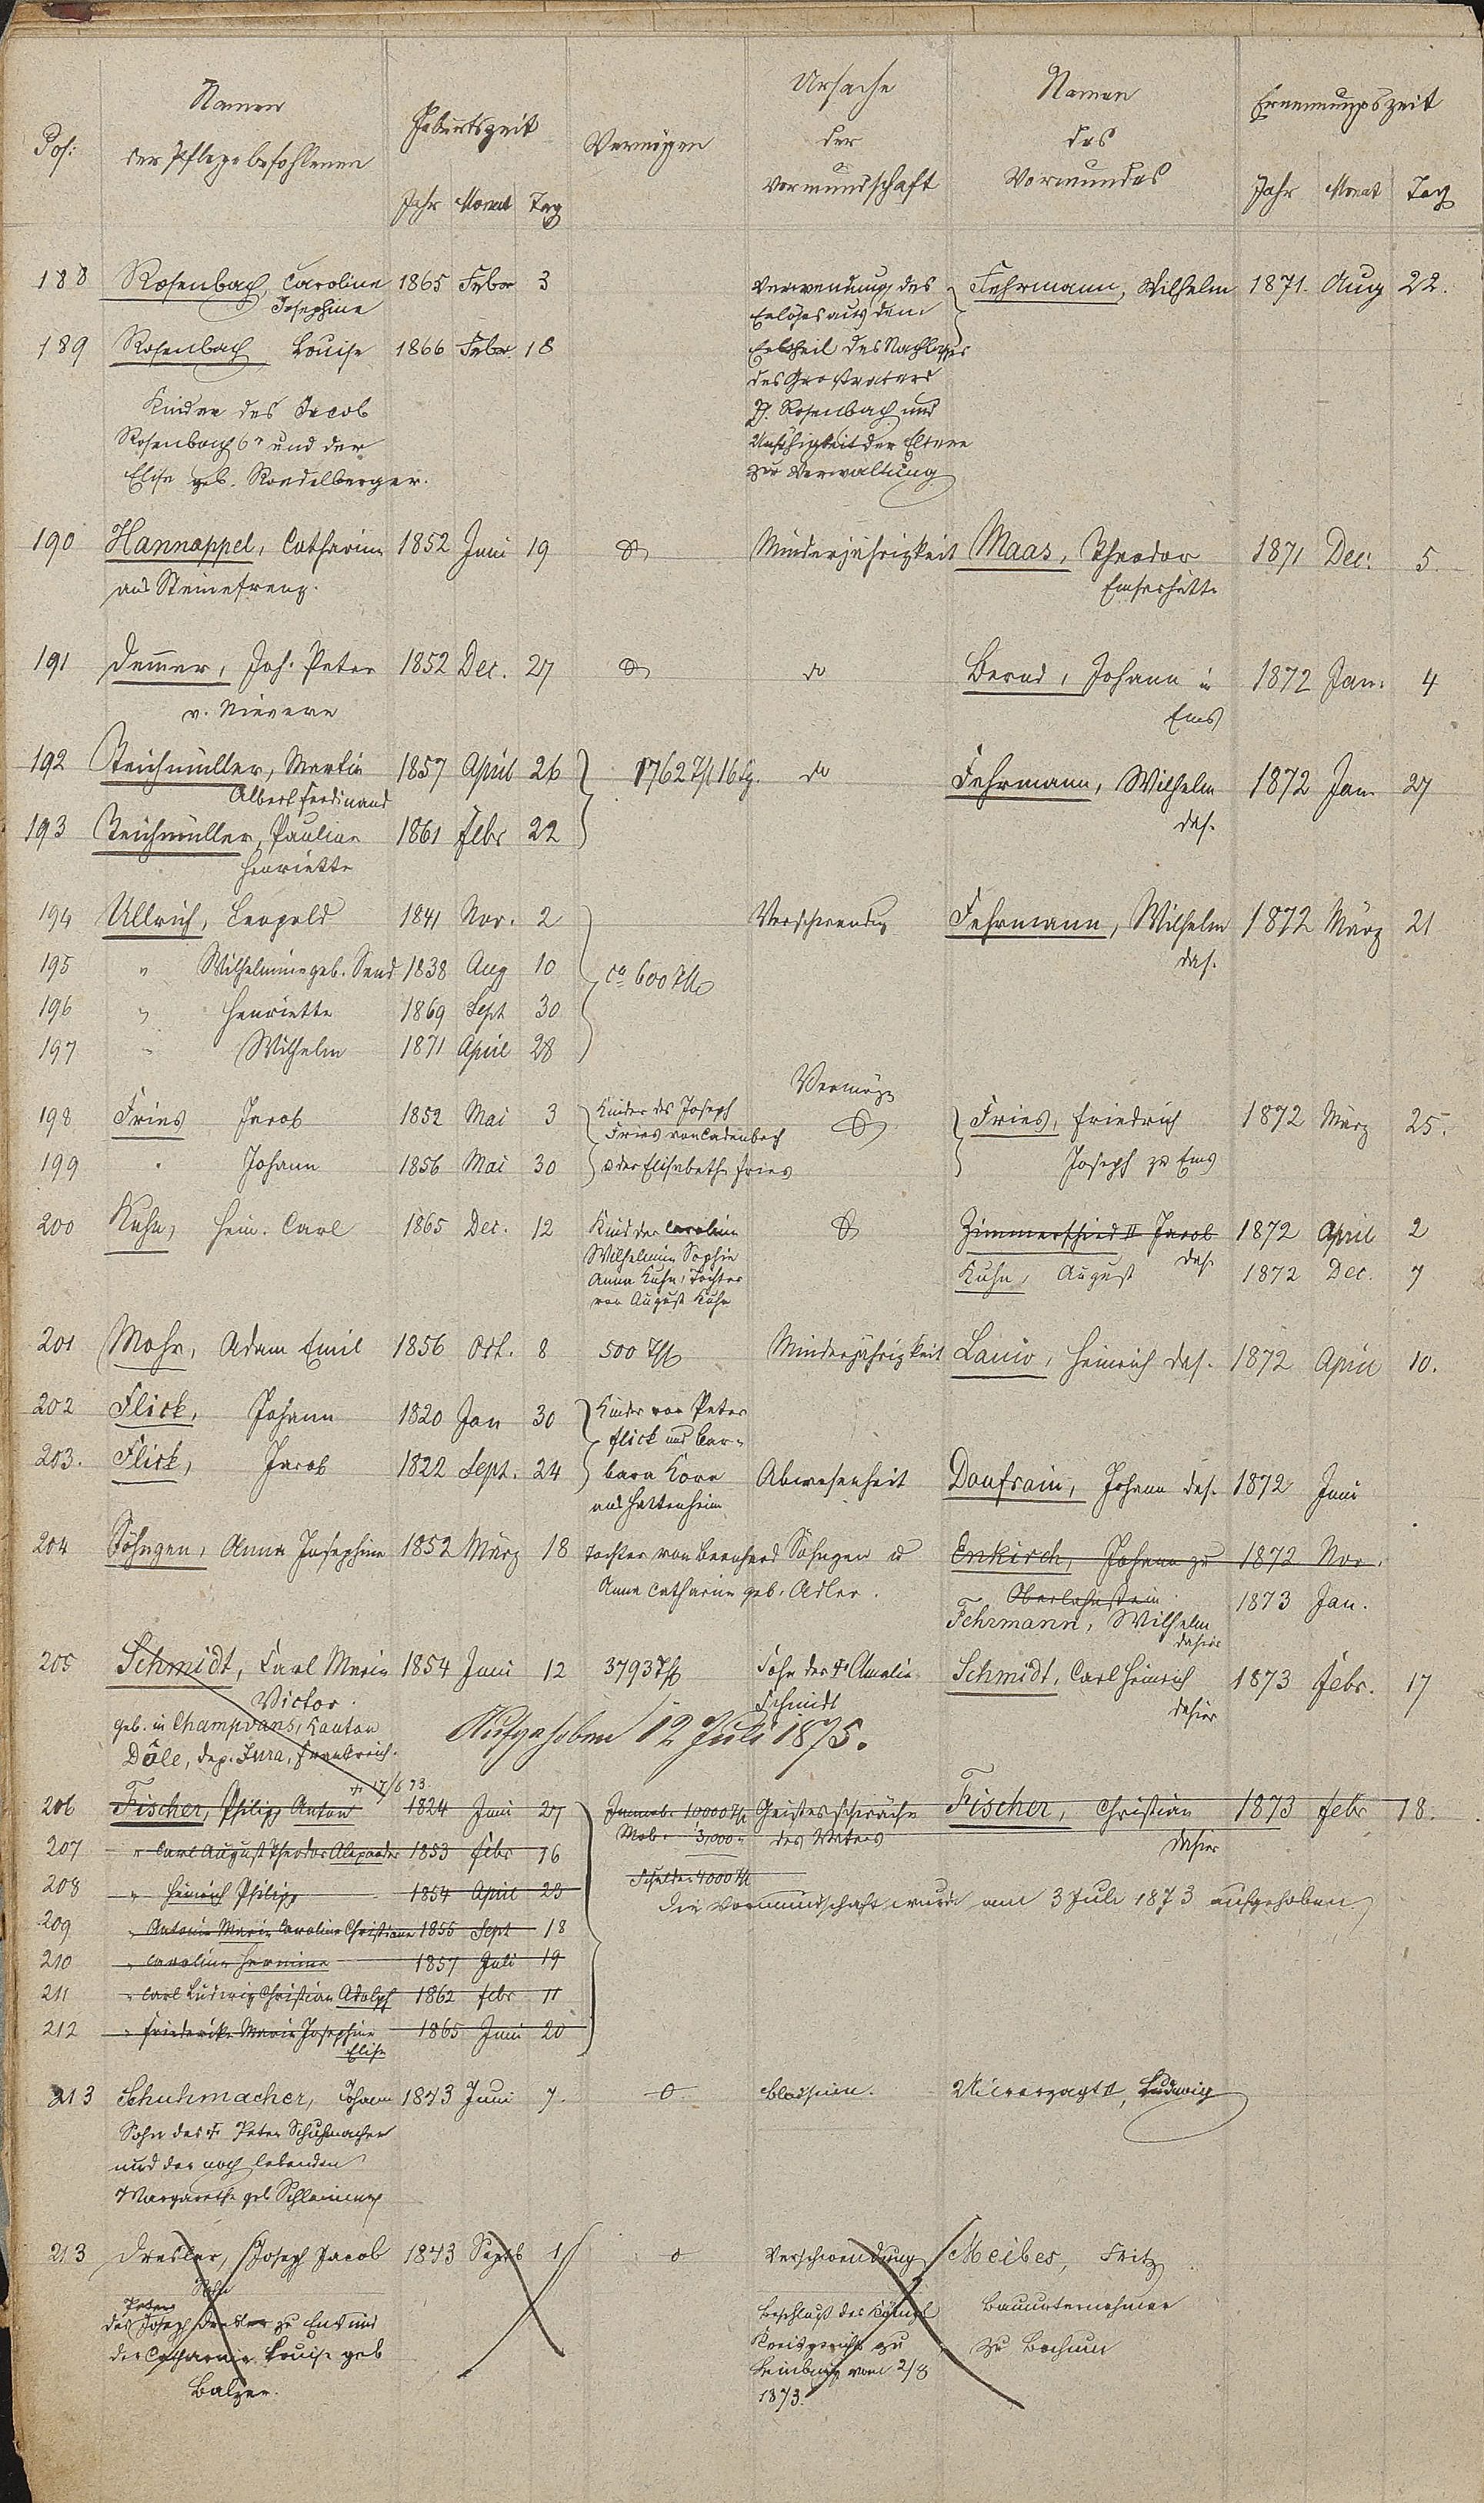 Pos: Namen der Pflegebefohlenen Geburtszeit Vermögen Ursache der Vormundschaft Namen des Vormundes Ernennungszeit
Jahr Monat Tag Jahr Monat Tag
188 Rosenbach, Caroline 1865 Febr 3 Verwendung des Fehrmann, Wilhelm 1871. Aug 22.
Josephine Erlöses aus dem
189 Rosenbach Louise 1866 Febr. 18 Erbtheil des Nachlasses
des Großvaters
Kinder des Jacob Rosenbach und
Rosenbach 6r und der Unfähigkeit der Eltern
Elise geb. Rondelberger. zur Verwaltung
190 Hannappel, Catharina 1852 Juni 19 Minderjährigkeit Maas, Theodor 1871 Dec: 5.
aus Steinefrenz. Emserhütte
191 Demmer, Joh. Peter 1852 Dec. 27 do Bernd, Johann in 1872 Jan. 4
v. Nievern Ems
192 Reichmüller, Martin 1857 April 26 1762 Th 16 Sg. do Fehrmann, Wilhelm 1872 Jan 27
Albert Ferdinand das.
193 Reichmüller, Pauline 1861 Febr 22
Henriette
194 Ullrich, Leopold 1841 Nov. 2 Verschwendg Fehrmann, Wilhelm 1872 März 21
195 " Wilhelmine geb. Send 1838 Aug 10 ca 600 Th das.
196 " Henriette 1869 Sept 30
197 " Wilhelm 1871 April 28
Vermög
198 Fries Jacob 1852 Mai 3 Kinder des Joseph Fries, Friedrich 1872 März 25.
Fries von Cadenbach
199 " Johann 1856 Mai 30 u der Elisabeth Fries Joseph zu Ems
200 Kuhn, Hein. Carl 1865 Dec. 12 Kind der Caroline Zimmerschied II Jacob 1872 April 2
Wilhelmine Sophie das.
Anna Kuhn, Tochter Kuhn, August 1872 Dec. 7
von August Kuhn
201 Mohr, Adam Emil 1856 Oct. 8 500 Th Minderjährigkeit Lanio, Heinrich das. 1872 April 10.
202 Flick, Johann 1820 Jan 30 Kinder von Peter
Flick und Bar-
203. Flick, Jacob 1822 Sept. 24 bara Korn Abwesenheit Daufrain, Johann das. 1872 Juni
aus Hattenheim
204 Söhngen, Anna Josephine 1852 März 18 Tochter von Bernhard Söhngen u Enkirch, Johann zu 1872 Nov.
Anna Catharine geb. Adler. Oberlahnstein 1873 Jan.
Fehrmann, Wilhelm
dahier
205 Schmidt, Carl Maria 1854 Juni 12 3793 Th Sohn der Amalie Schmidt, Carl Heinrich 1873 Febr. 17
Victor. Schmidt dahier
geb. in Champvans, Kanton Aufgehoben 12 Juli 1875.
Dôle, dep. Jura, Frankreich.
† 17/6 73.
206 Fischer, Philipp Anton 1824 Juni 27 Immob. 10000 Th Geistesschwäche Fischer, Christian 1873 Febr 18.
Mob. 3,000 " des Vaters dahier
207 " Carl August Theodor Alexander 1853 Febr 16
208 " Heinrich Philipp 1854 April 23 Schulden 4000 Th
Die Vormundschaft wurde am 3 Juli 1873 aufgehoben.
209 " Antonie Marie Caroline Christiane 1855 Sept 18
210 " Caroline Hermine 1857 Juli 19
211 " Carl Ludwig Christian Adolph 1862 Febr 11
212 " Friederike Marie Josephine 1865 Juni 20
Elise
213 Schuhmacher, Johann 1843 Juni 7. 0 Blödsinn. Unverzagt II, Ludwig
Sohn des † Peter Schuhmacher
und der noch lebenden
Margarethe geb
213 Dresler, Joseph Jacob 1843 Septb 1 0 Verschwendung Meibes, Fritz
Sohn
Peter
des Joseph Dresler zu Ems und Beschluß des Königl Bauunternehmer
der Catharine Louise geb Kreisgerichts zu zu Bochum
Balzer. Limburg vom 2/8
1873.